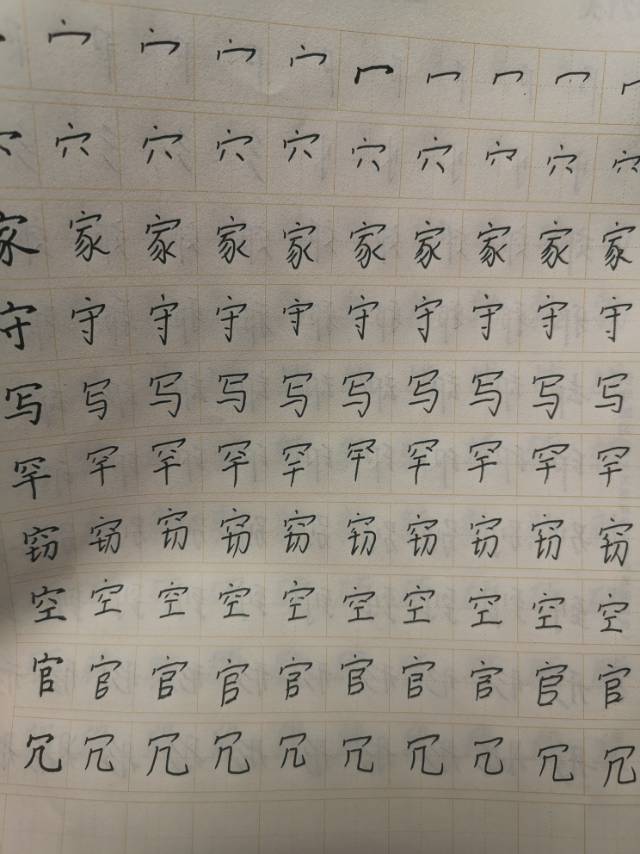 宀宀宀宀宀冖冖冖冖冖
穴穴穴穴穴穴穴穴穴穴
家家家家家家家家家家
守守守守守守守守守守
写写写写写写写写写写
罕罕罕罕罕罕罕罕罕罕
窃窃窃窃窃窃窃窃窃窃
空空空空空空空空空空
官官官官官官官官官官
冗冗冗冗冗冗冗冗冗冗